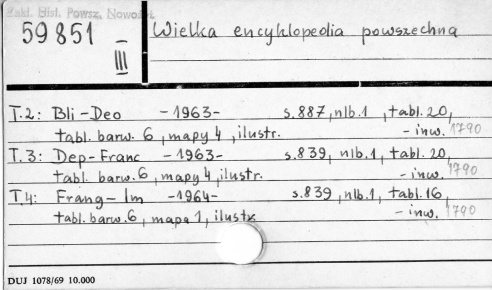 Zakł. Hist. Powsz. Nowoż.
59851 – III
Wielka encyklopedia powszechna
T.2: Bli-Deo -1963- s.887, nlb.1, tabl.20,
tabl. barw. 6, mapy 4, ilustr. - inw. 1790
T.3: Dep-Franc -1963- s.839, nlb.1, tabl.20,
tabl. barw. 6, mapy 4, ilustr. - inw. 1790
T.4: Frang-Im -1964- s.839, nlb.1, tabl.16,
tabl. barw. 6, mapa 1, ilustr. - inw. 1790
DUJ 1078/69 10.000